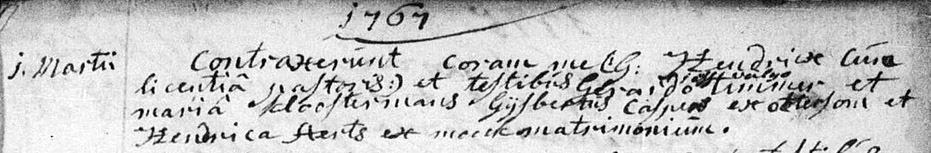 1767
j. Martii Contraxerunt coram me G: Hendricx Cum
licentiâ pastoris:) et testibus Gerardo vulgo Timmer et
mariâ kloostermans Gijsbertus Caspers ex ottersom et
Hendrica Aerts ex moock matrimonium.